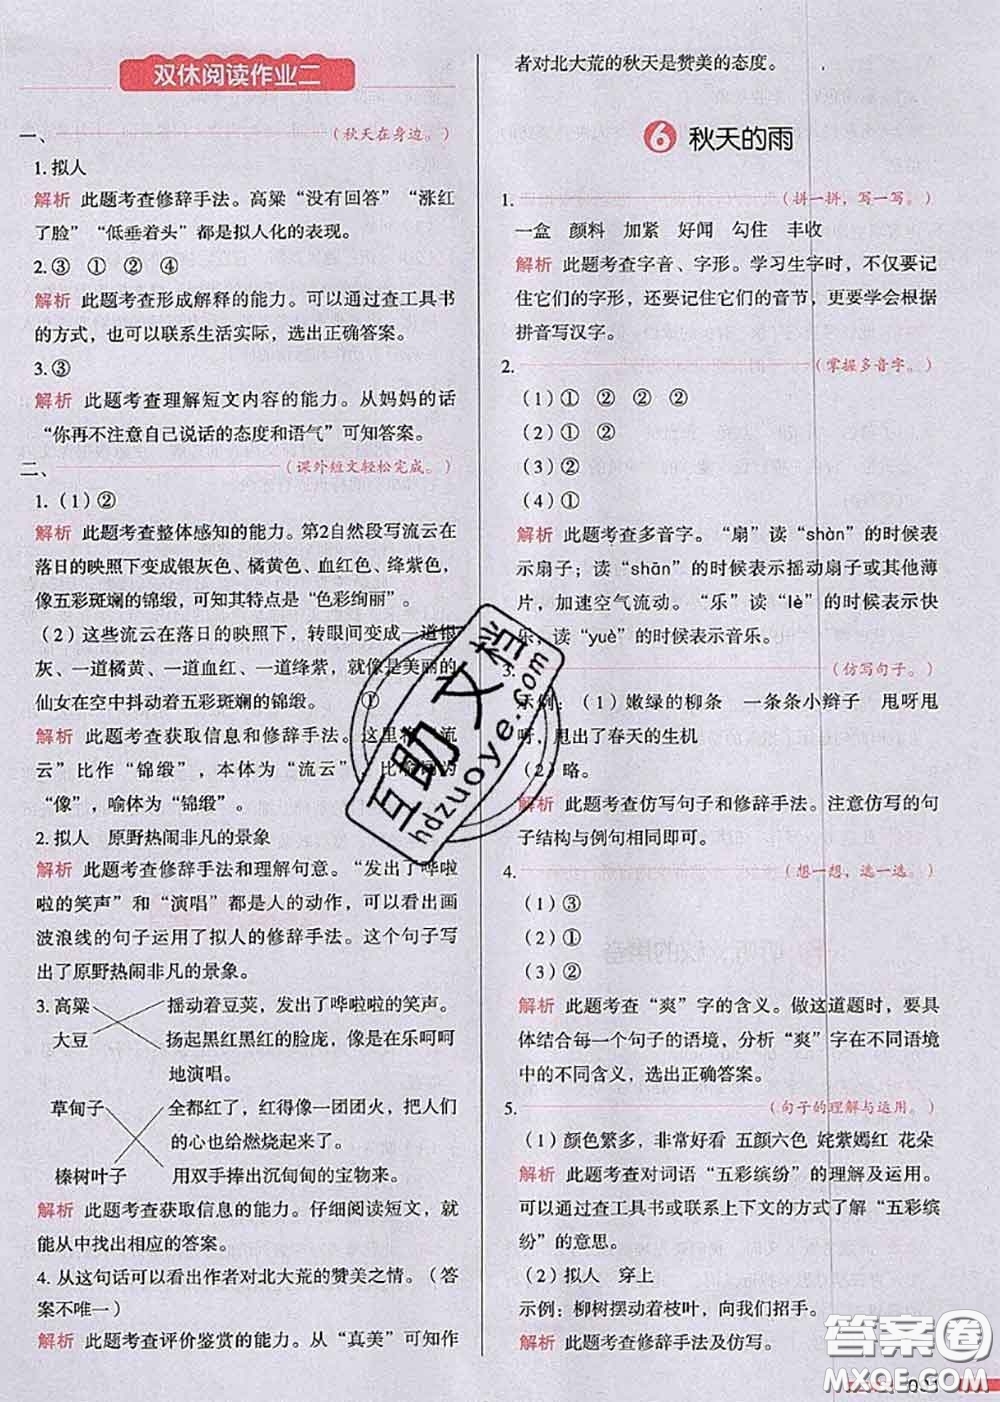 双休阅读作业二
一、(秋天在身边。)
1. 拟人
解析 此题考查修辞手法。高粱“没有回答”“涨红
了脸”“低垂着头”都是拟人化的表现。
2. ③ ① ② ④
解析 此题考查形成解释的能力。可以通过查工具书
的方式，也可以联系生活实际，选出正确答案。
3. ③
解析 此题考查理解短文内容的能力。从妈妈的话
“你再不注意自己说话的态度和语气”可知答案。
二、(课外短文轻松完成。)
1.（1）②
解析 此题考查整体感知的能力。第2自然段写流云在
落日的映照下变成银灰色、橘黄色、血红色、绛紫色，
像五彩斑斓的锦缎，可知其“色彩绚丽”。
（2）这些流云在落日的映照下，转眼间变成一道银
灰、一道橘黄、一道血红、一道绛紫，就像是美丽的
仙女在空中抖动着五彩斑斓的锦缎。 ①
解析 此题考查获取信息和修辞手法。这里将“流
云”比作“锦缎”，本体为“流云”，比喻词为
“像”，喻体为“锦缎”。
2. 拟人 原野热闹非凡的景象
解析 此题考查修辞手法和理解句意。“发出了哗啦
啦的笑声”和“演唱”都是人的动作，可以看出画
波浪线的句子运用了拟人的修辞手法。这个句子写
出了原野热闹非凡的景象。
3. 高粱 摇动着豆荚，发出了哗啦啦的笑声。
大豆 扬起黑红黑红的脸庞，像是在乐呵呵
地演唱。
草甸子 全都红了，红得像一团团火，把人们
的心也给燃烧起来了。
榛树叶子 用双手捧出沉甸甸的宝物来。
解析 此题考查获取信息的能力。仔细阅读短文，就
能从中找出相应的答案。
4. 从这句话可以看出作者对北大荒的赞美之情。（答
案不唯一）
解析 此题考查评价鉴赏的能力。从“真美”可知作
者对北大荒的秋天是赞美的态度。
6 秋天的雨
1. (拼一拼，写一写。)
一盒 颜料 加紧 好闻 勾住 丰收
解析 此题考查字音、字形。学习生字时，不仅要记
住它们的字形，还要记住它们的音节，更要学会根据
拼音写汉字。
2. (掌握多音字。)
（1）① ② ② ②
（2）① ①
（3）①
（4）①
解析 此题考查多音字。“扇”读“shàn”的时候表
示扇子；读“shān”的时候表示摇动扇子或其他薄
片，加速空气流动。“乐”读“lè”的时候表示快
乐；读“yuè”的时候表示音乐。
3. (仿写句子。)
示例：（1）嫩绿的柳条 一条条小辫子 甩呀甩
呀，甩出了春天的生机
（2）略。
解析 此题考查仿写句子和修辞手法。注意仿写的句
子结构与例句相同即可。
4. (想一想，选一选。)
（1）③
（2）①
解析 此题考查“爽”字的含义。做这道题时，要具
体结合每一个句子的语境，分析“爽”字在不同语境
中的不同含义，选出正确答案。
5. (句子的理解与运用。)
（1）颜色繁多，非常好看 五颜六色 姹紫嫣红 花朵
解析 此题考查对词语“五彩缤纷”的理解及运用。
可以通过查工具书或联系上下文的方式了解“五彩缤
纷”的意思。
（2）拟人 穿上
示例：柳树摆动着枝叶，向我们招手。
解析 此题考查修辞手法及仿写。
互助文档
hdzuoye.com
答案圈
MXQE.COM